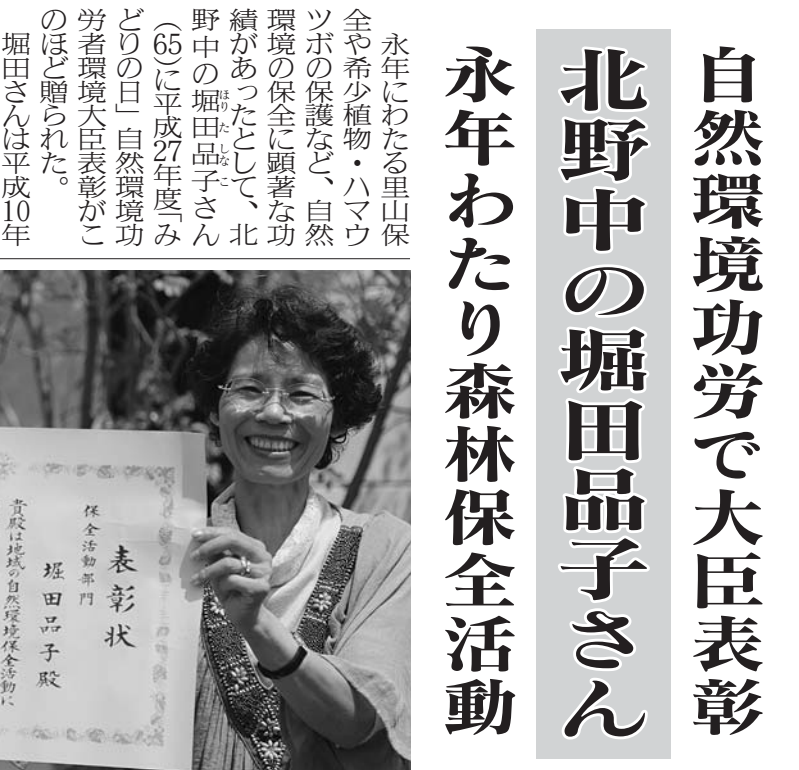 自然環境功労で大臣表彰
北野中の堀田品子さん
永年わたり森林保全活動
永年にわたる里山保
全や希少植物・ハマウ
ツボの保護など、自然
環境の保全に顕著な功
績があったとして、北
野中の堀田品子さん
ほりたしなこ
（65）に平成27年度「み
どりの日」自然環境功
労者環境大臣表彰がこ
のほど贈られた。
堀田さんは平成10年
表彰状
保全活動部門
堀田品子殿
貴殿は地域の自然環境保全活動に